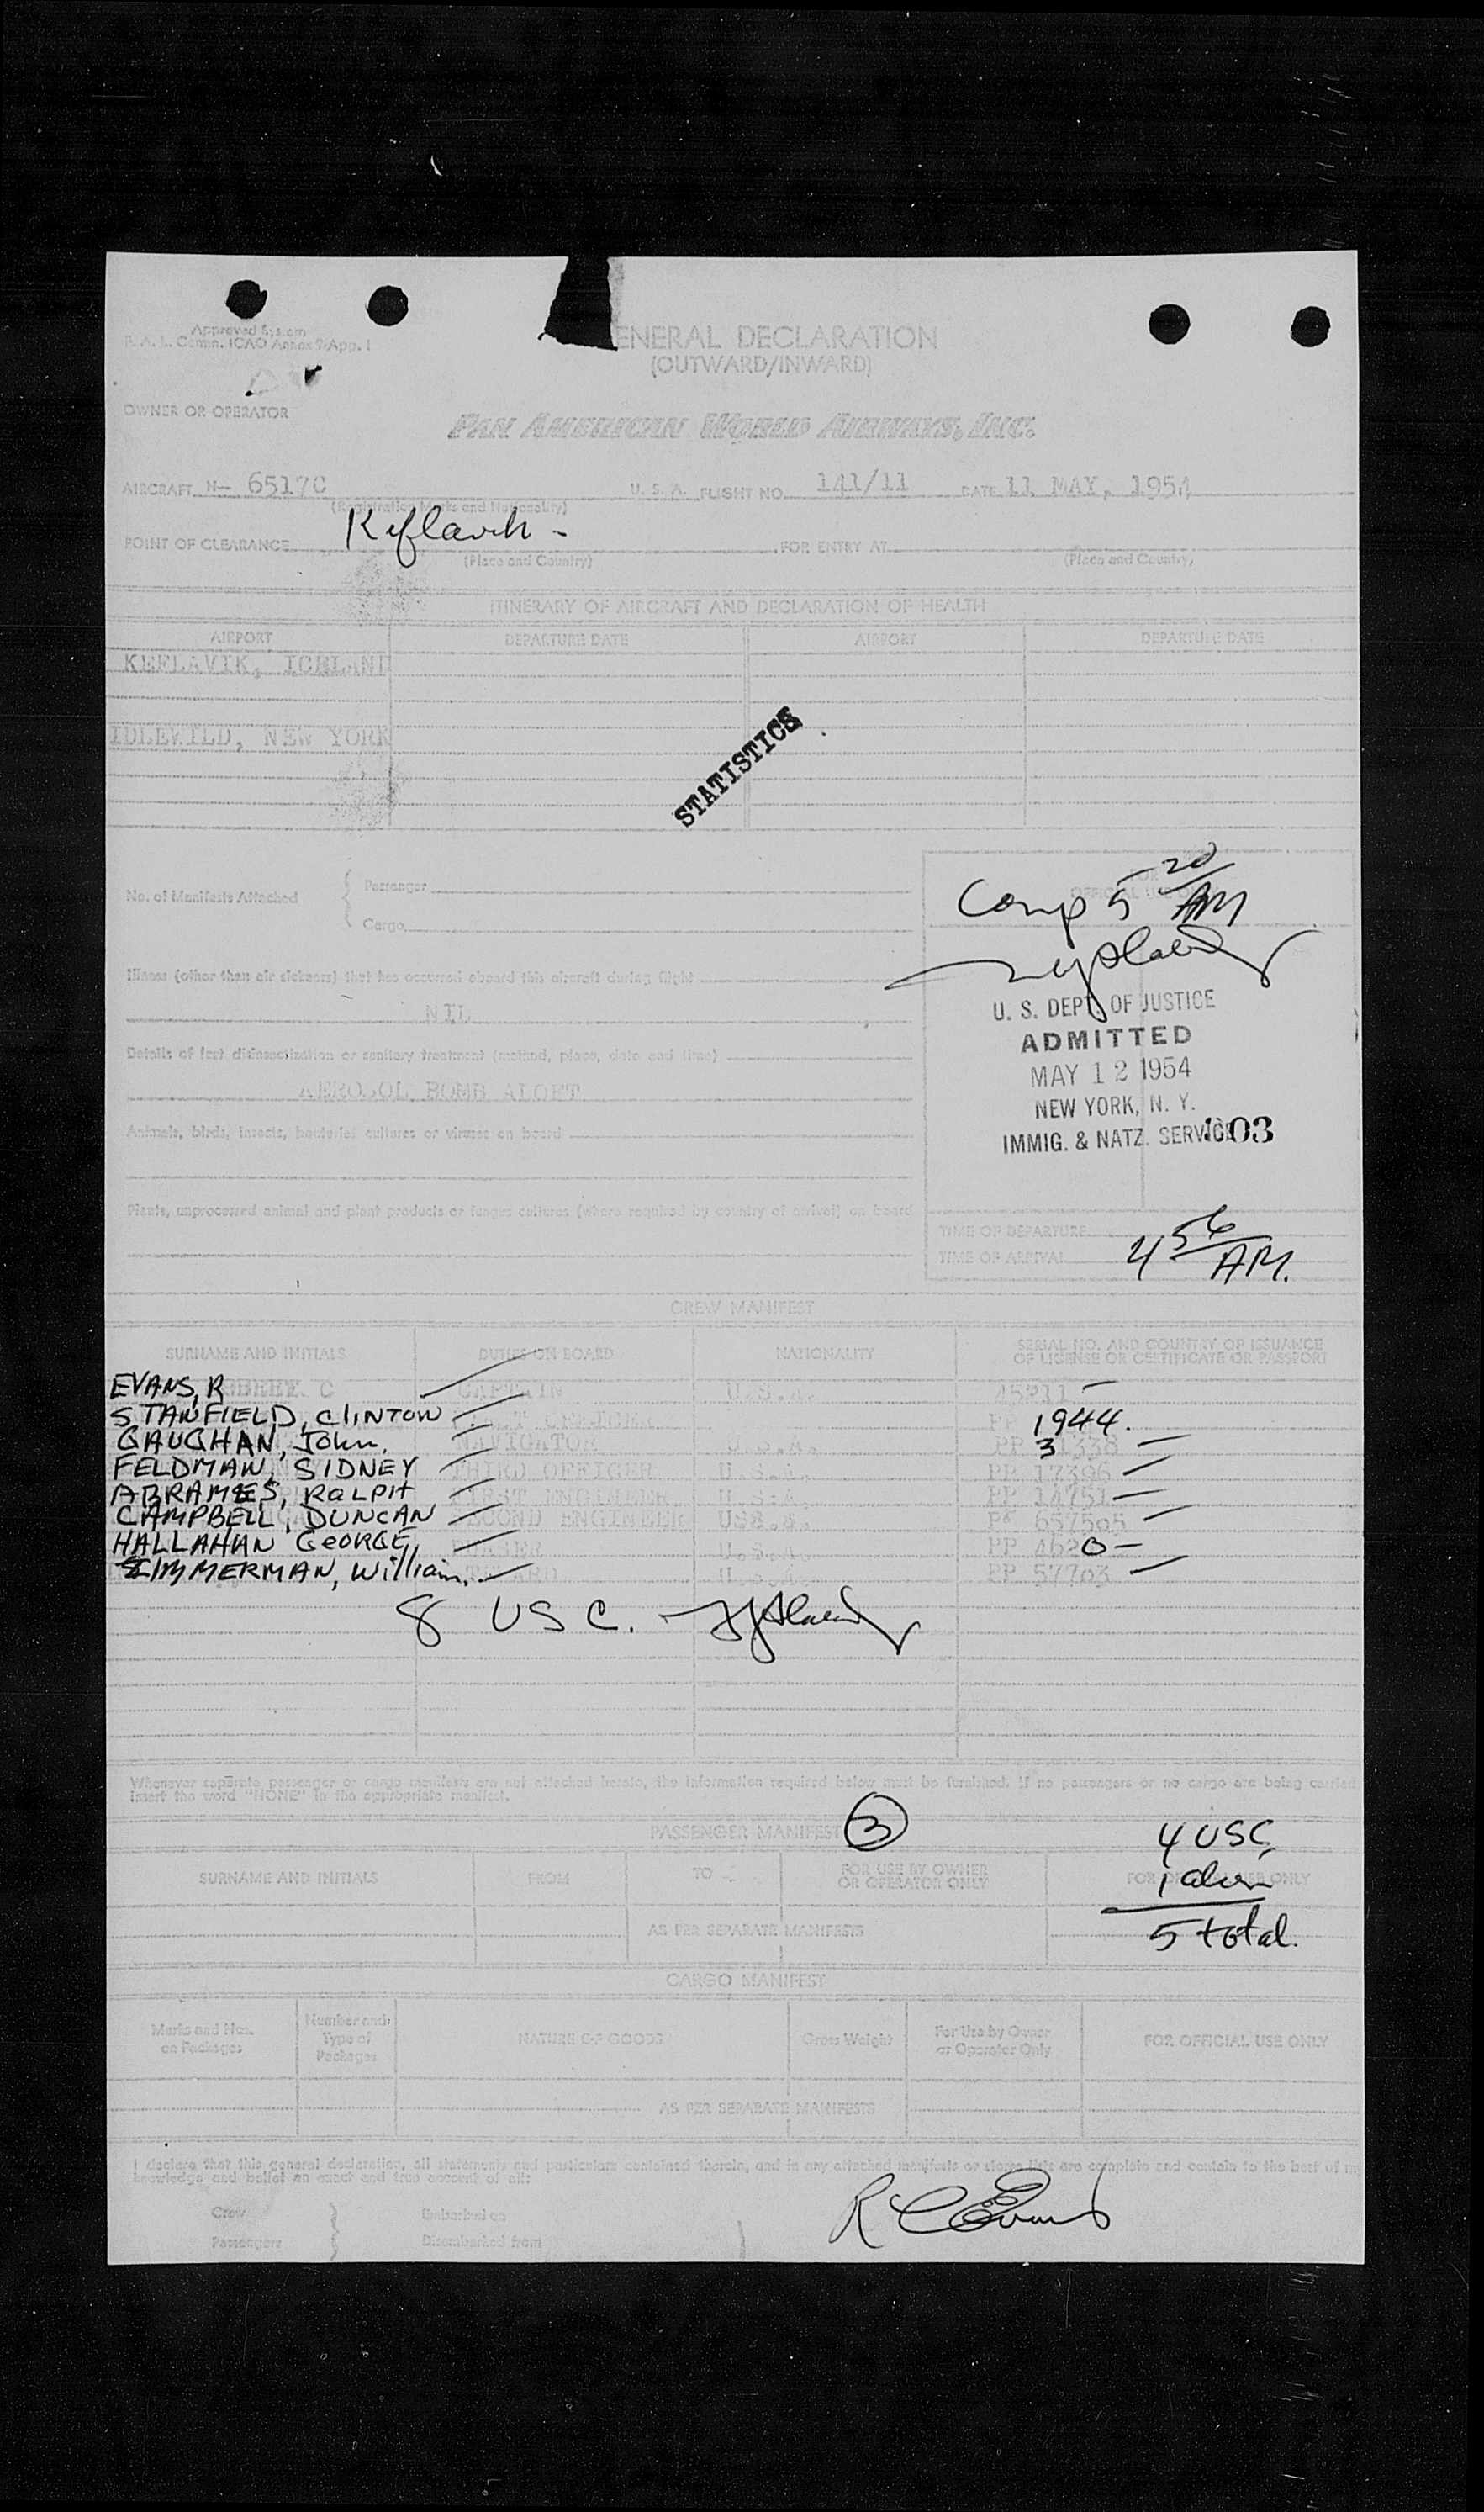 ENERAL DECLARATION
(OUTWARD/INWARD)
OWNER OR OPERATOR
PAN AMERICAN WORLD AIRWAYS, INC.
AIRCRAFT N- 6517C U. S. A. FLIGHT NO. 141/11 DATE 11 MAY, 1954
(Registration Marks and Nationality)
POINT OF CLEARANCE Keflavik - FOR ENTRY AT
(Place and Country) (Place and Country)
ITINERARY OF AIRCRAFT AND DECLARATION OF HEALTH
AIRPORT DEPARTURE DATE AIRPORT DEPARTURE DATE
KEFLAVIK, ICELAND
IDLEWILD, NEW YORK
STATISTICS
Comp 5 20 AM
No. of Manifests Attached
Passenger
Cargo
Illness (other than air sickness) that has occurred aboard this aircraft during flight
NIL
Details of last disinsectization or sanitary treatment (method, place, date and time)
AEROSOL BOMB ALOFT
Animals, birds, insects, bacterial cultures or viruses on board
Plants, unprocessed animal and plant products or fungus cultures (where required by country of arrival) on board
U. S. DEPT. OF JUSTICE
ADMITTED
MAY 12 1954
NEW YORK, N. Y.
IMMIG. & NATZ. SERVICE 103
TIME OF DEPARTURE
TIME OF ARRIVAL 4 56 AM.
CREW MANIFEST
SURNAME AND INITIALS DUTIES ON BOARD NATIONALITY SERIAL NO. AND COUNTRY OF ISSUANCE
OF LICENSE OR CERTIFICATE OR PASSPORT
EVANS, R CAPTAIN U.S.A. 45211
STANFIELD, CLINTON 1944.
GAUGHAN, John. NAVIGATOR
FELDMAN, SIDNEY THIRD OFFICER U.S.A. PP 17396
ABRAMES, RALPH FIRST ENGINEER U.S.A. PP 14751
CAMPBELL, DUNCAN SECOND ENGINEER U.S.A. PP 657505
HALLAHAN GEORGE, PURSER U.S.A.
ZIMMERMAN, William. U.S.A. PP 57763
8 USC.
Whenever separate passenger or cargo manifests are not attached hereto, the information required below must be furnished. If no passengers or no cargo are being carried
insert the word "NONE" in the appropriate manifest.
PASSENGER MANIFEST 3
4 USC
SURNAME AND INITIALS FROM TO FOR USE BY OWNER
OR OPERATOR ONLY FOR OFFICIAL USE ONLY
1 alien
AS PER SEPARATE MANIFESTS
5 total.
CARGO MANIFEST
Marks and Nos.
on Packages Number and
Type of
Packages NATURE OF GOODS Gross Weight For Use by Owner
or Operator Only FOR OFFICIAL USE ONLY
AS PER SEPARATE MANIFESTS
I declare that this general declaration, all statements and particulars contained therein, and in any attached manifests or stores lists are complete and contain to the best of my
knowledge and belief an exact and true account of all:
Crew Embarked on
Passengers Disembarked from
R C Evans